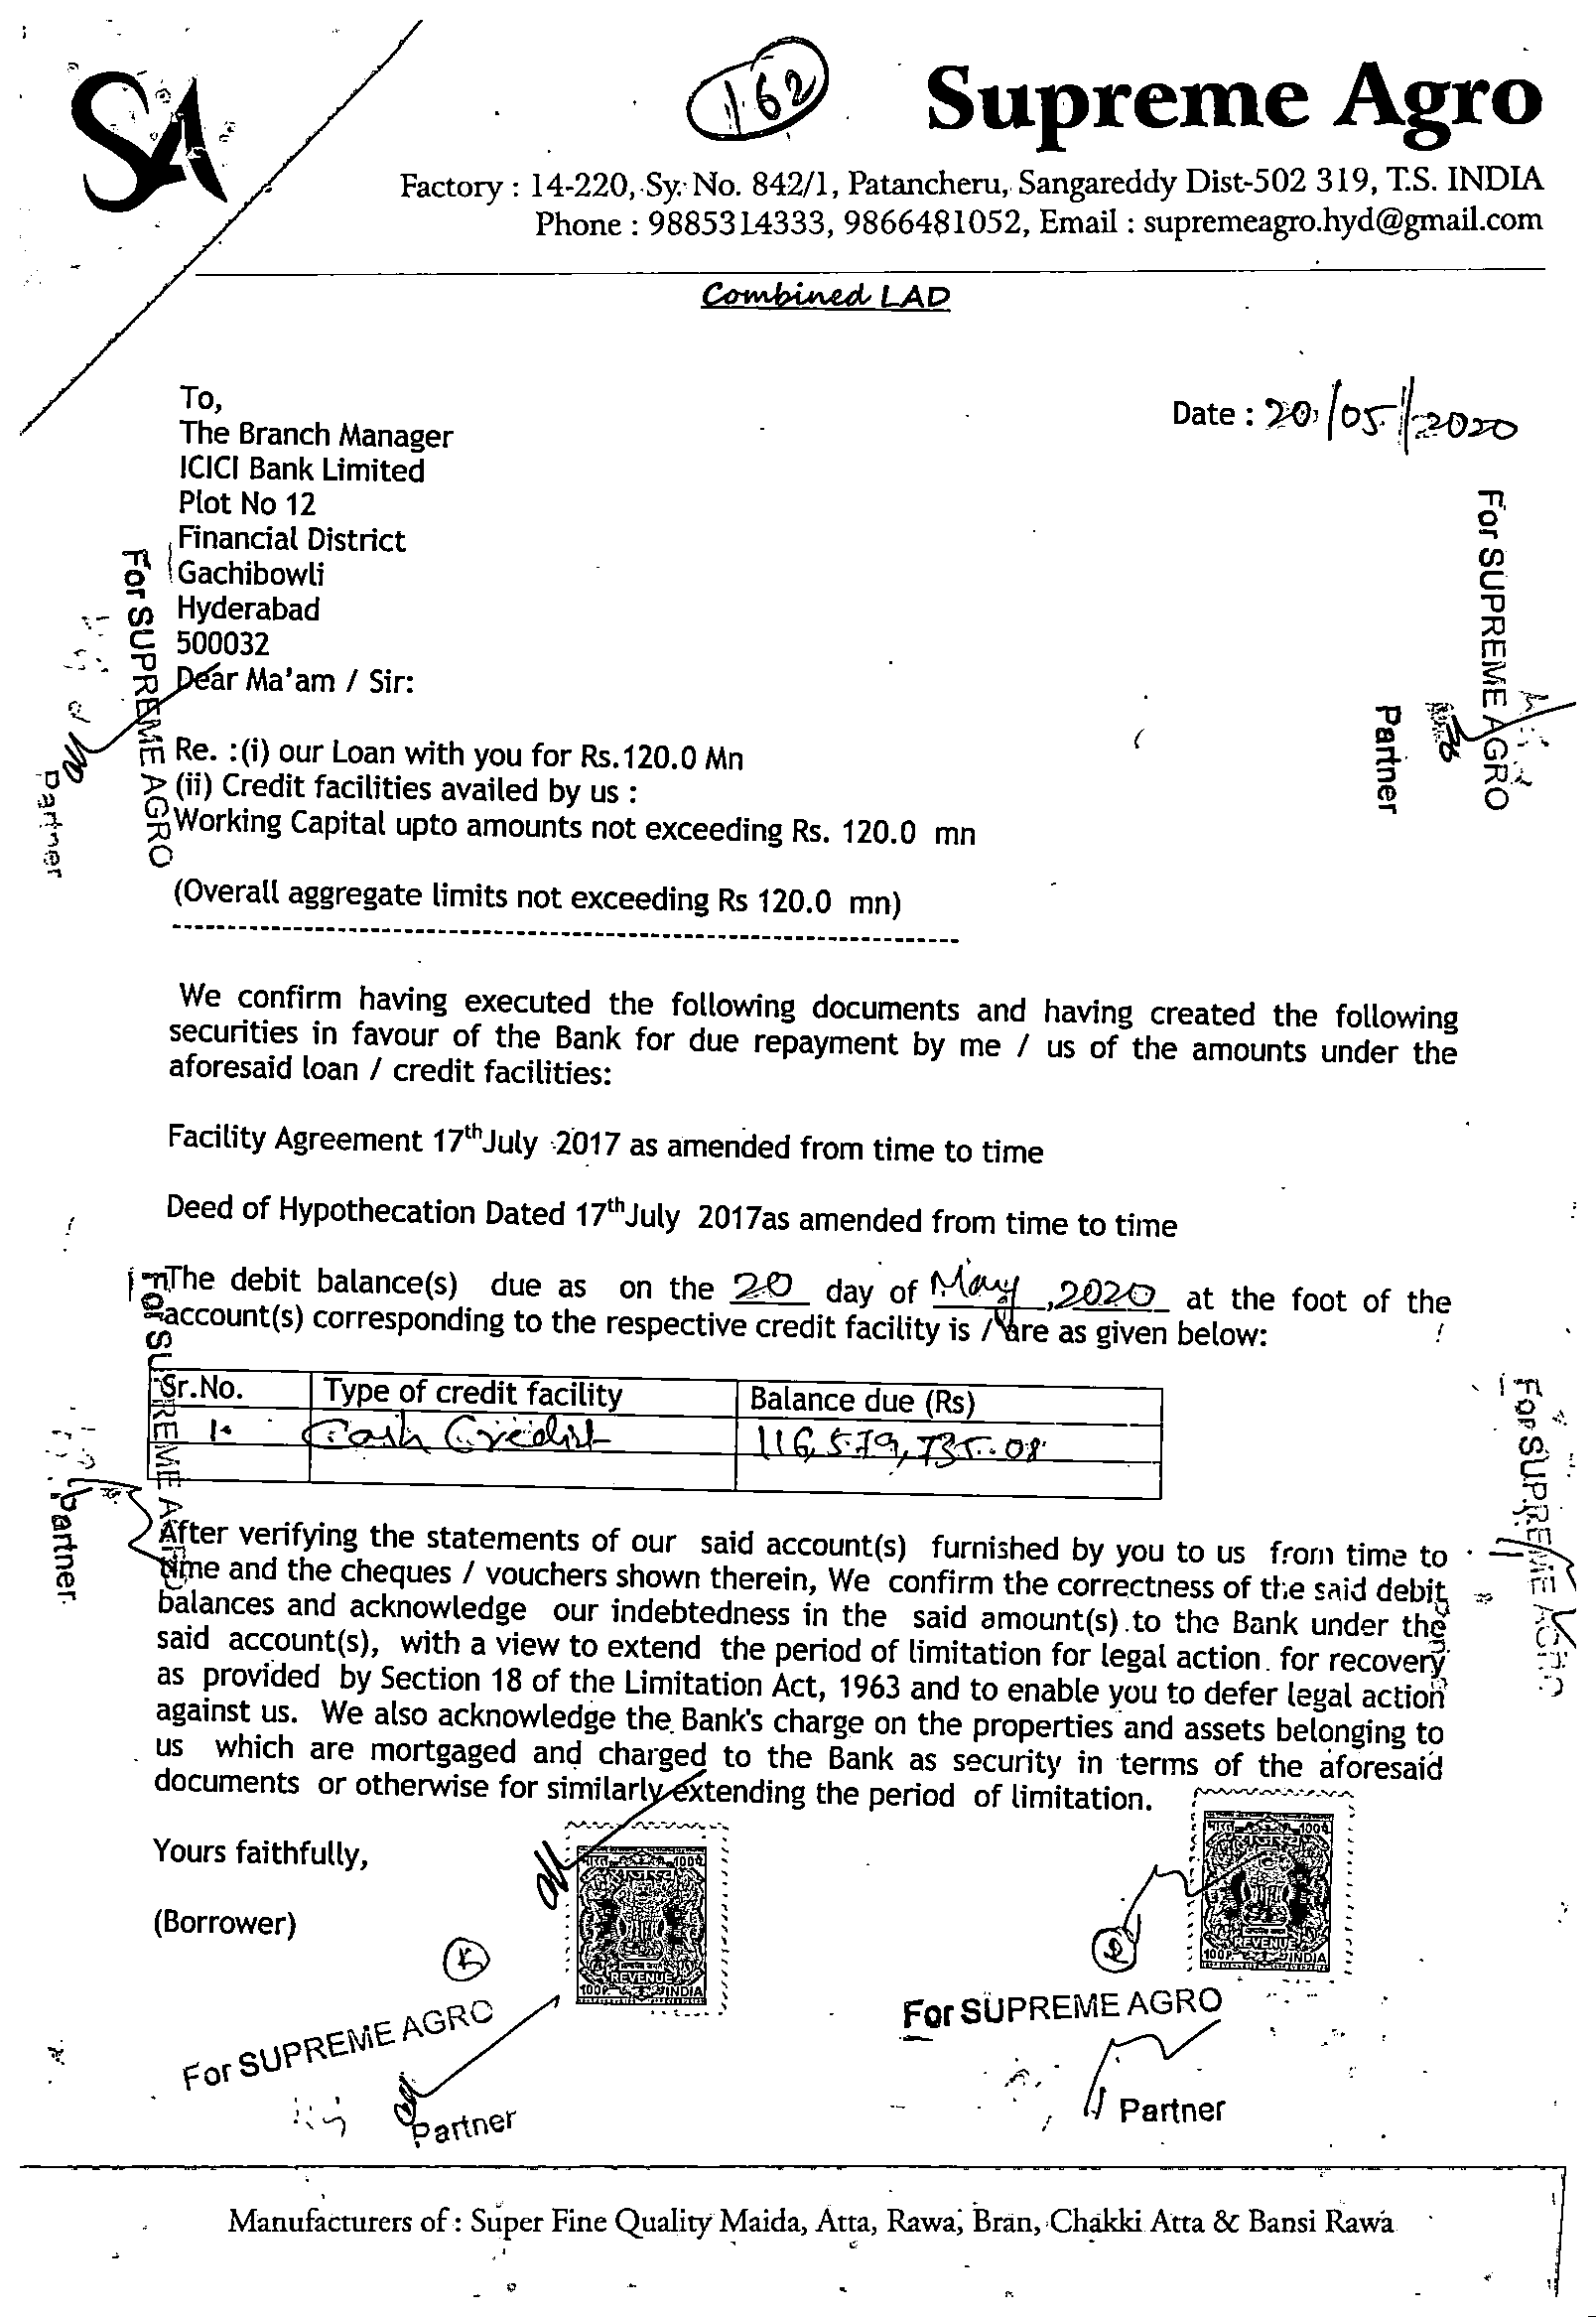 SA
162
Supreme Agro
Factory : 14-220, Sy. No. 842/1, Patancheru, Sangareddy Dist-502 319, T.S. INDIA
Phone : 9885314333, 9866481052, Email : supremeagro.hyd@gmail.com
Combined LAD
To,
Date : 20/05/2020
The Branch Manager
ICICI Bank Limited
Plot No 12
Financial District
Gachibowli
Hyderabad
500032
Dear Ma'am / Sir:
For SUPREME AGRO
Partner
For SUPREME AGRO
Partner
Re. :(i) our Loan with you for Rs.120.0 Mn
(ii) Credit facilities availed by us :
Working Capital upto amounts not exceeding Rs. 120.0 mn
(Overall aggregate limits not exceeding Rs 120.0 mn)
We confirm having executed the following documents and having created the following
securities in favour of the Bank for due repayment by me / us of the amounts under the
aforesaid loan / credit facilities:
Facility Agreement 17th July 2017 as amended from time to time
Deed of Hypothecation Dated 17th July 2017as amended from time to time
The debit balance(s) due as on the 20 day of May, 2020 at the foot of the
account(s) corresponding to the respective credit facility is / are as given below:
Sr.No. Type of credit facility Balance due (Rs)
1. Cash Credit 116,579,735.08
For SUPREME AGRO
Partner
For SUPREME AGRO
After verifying the statements of our said account(s) furnished by you to us from time to
time and the cheques / vouchers shown therein, We confirm the correctness of the said debit
balances and acknowledge our indebtedness in the said amount(s) to the Bank under the
said account(s), with a view to extend the period of limitation for legal action for recovery
as provided by Section 18 of the Limitation Act, 1963 and to enable you to defer legal action
against us. We also acknowledge the Bank's charge on the properties and assets belonging to
us which are mortgaged and charged to the Bank as security in terms of the aforesaid
documents or otherwise for similarly extending the period of limitation.
Yours faithfully,
(Borrower)
भारत 100P
REVENUE
100P. INDIA
भारत 100P
REVENUE
100P. INDIA
For SUPREME AGRO
Partner
For SUPREME AGRO
Partner
Manufacturers of : Super Fine Quality Maida, Atta, Rawa, Bran, Chakki Atta & Bansi Rawa